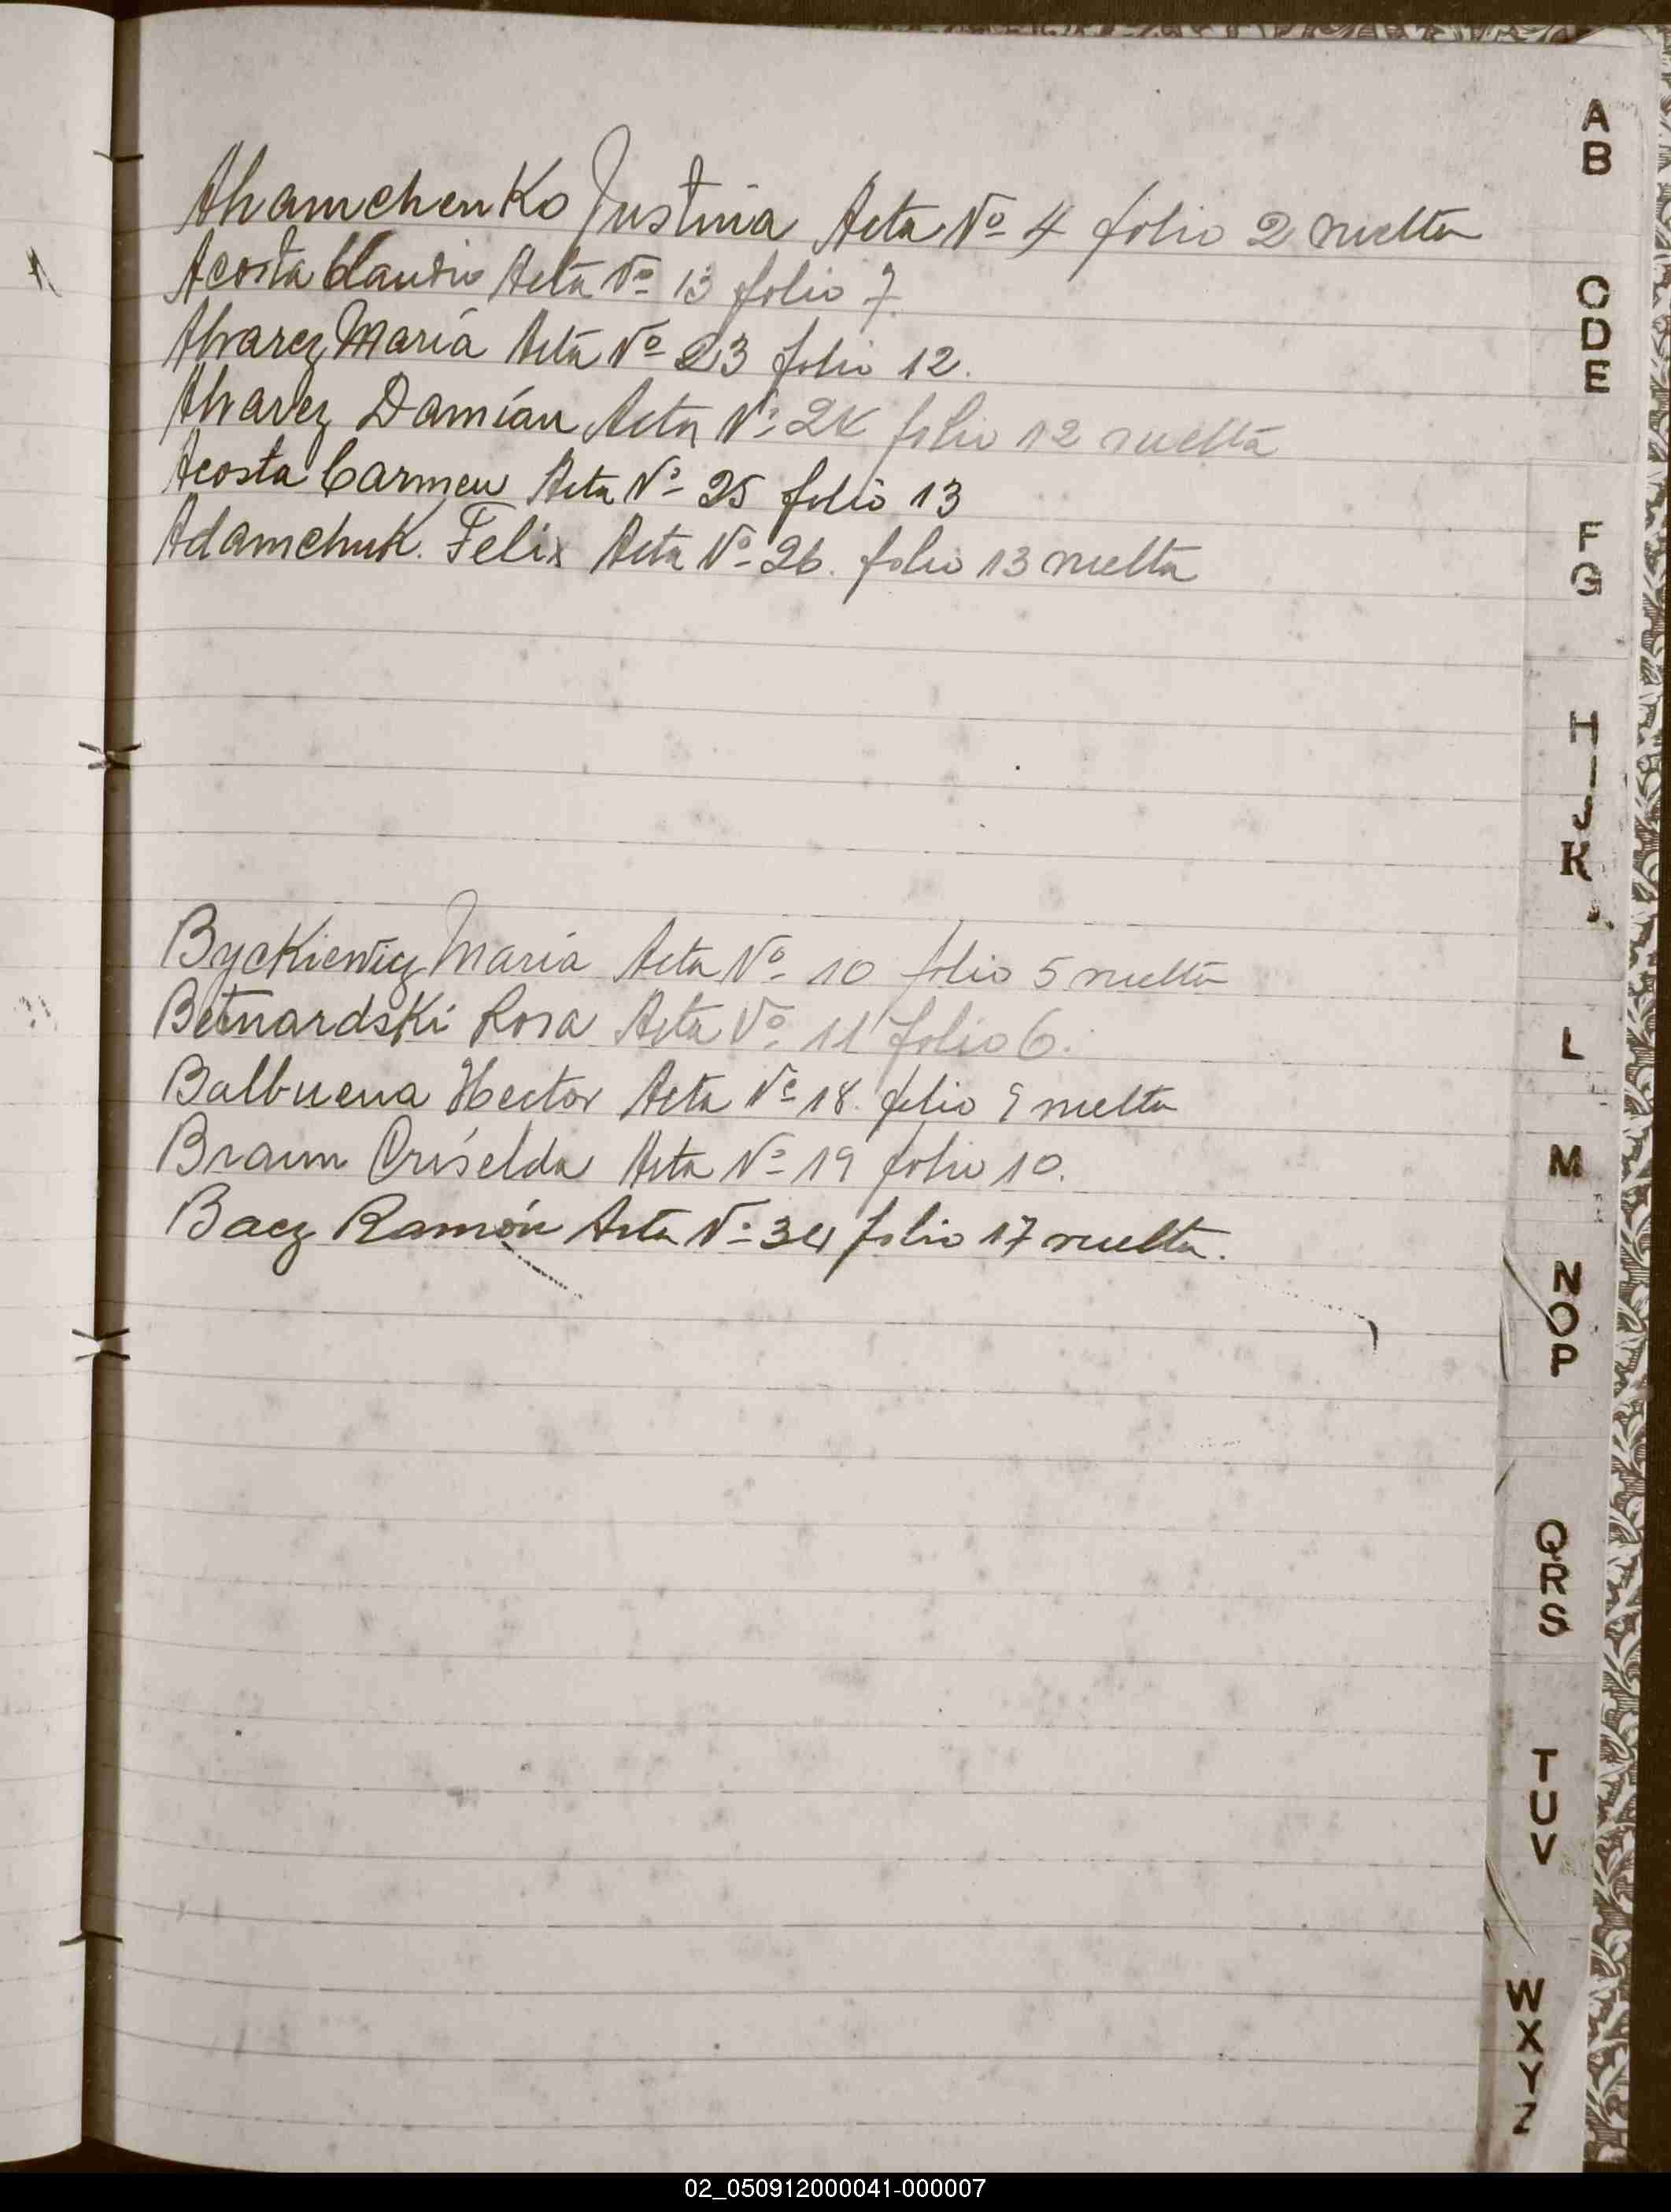 Ahamchenko Justina Acta Nº 4 folio 2 vuelta
Acosta Claudio Acta Nº 13 folio 7.
Alvarez María Acta Nº 23 folio 12.
Alvarez Damían Acta Nº 24 folio 12 vuelta
Acosta Carmen Acta Nº 25 folio 13
Adamchuk. Felix Acta Nº 26. folio 13 vuelta
Byckiewicz María Acta Nº 10 folio 5 vuelta
Betnardski Rosa Acta Nº 11 folio 6.
Balbuena Hector Acta Nº 18. folio 9 vuelta
Braun Criselda Acta Nº 19 folio 10.
Baez Ramón Acta Nº 34 folio 17 vuelta.
A
B
C
D
E
F
G
H
I
J
K
L
M
N
O
P
Q
R
S
T
U
V
W
X
Y
Z
02_050912000041-000007